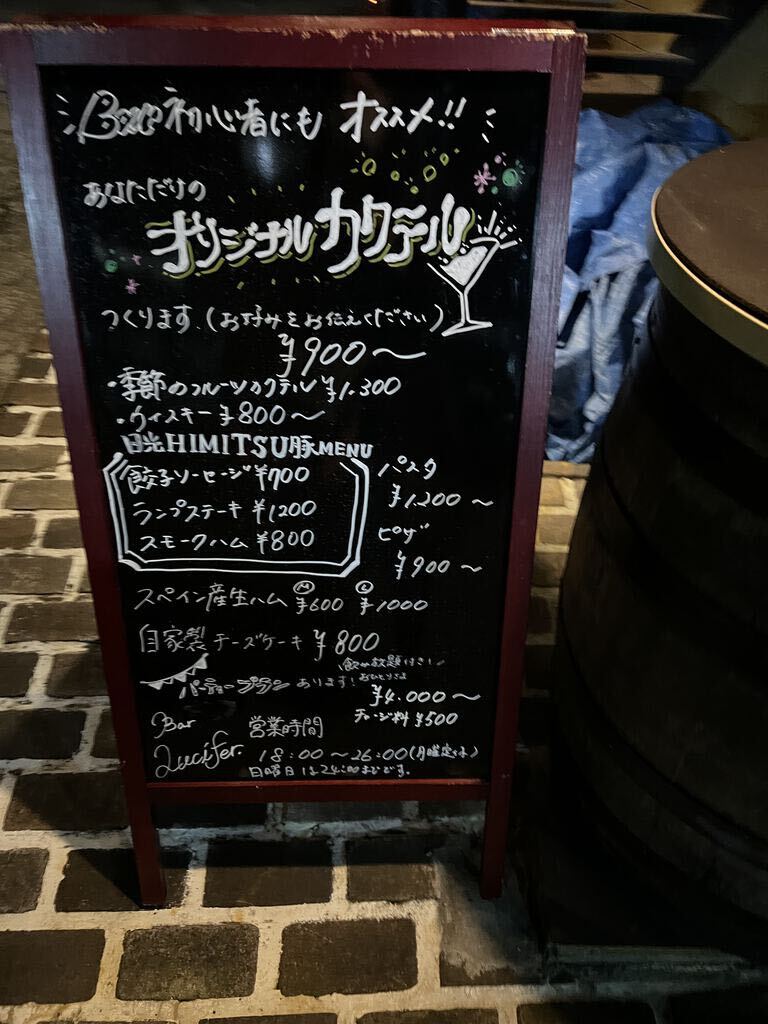 Bar初心者にも オススメ!!
あなただけの
オリジナルカクテル
つくります。(お好みをお伝えください)
¥900～
・季節のフルーツカクテル ¥1.300
・ウィスキー ¥800～
日光HIMITSU豚MENU
餃子ソーセージ ¥700
ランプステーキ ¥1200
スモークハム ¥800
パスタ
¥1.200～
ピザ
¥900～
スペイン産生ハム Ⓜ ¥600 Ⓛ ¥1000
自家製チーズケーキ ¥800
飲み放題付き!
パーティープランあります! おひとりさま
¥4.000～
チャージ料 ¥500
Bar
Lucifer.
営業時間
18:00～26:00(月曜定休)
日曜日は24:00までです。